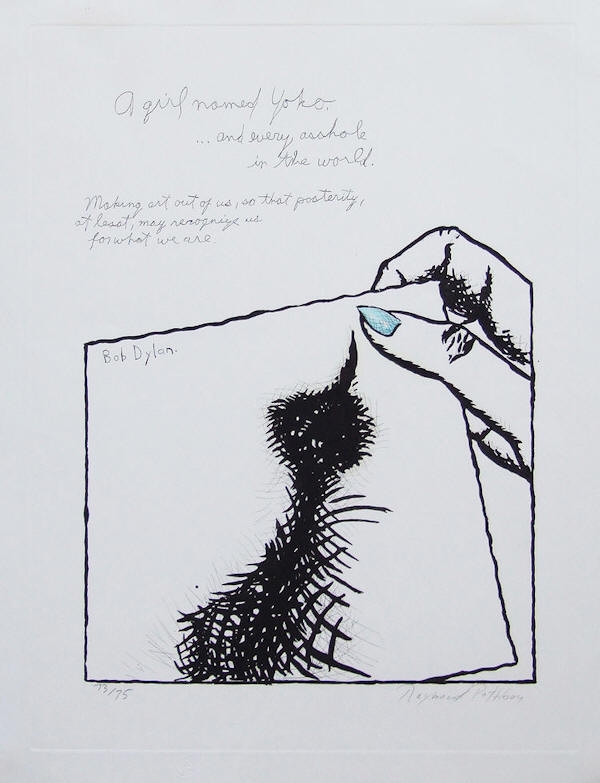 A girl named Yoko.
...and every asshole
in the world.
Making art out of us, so that posterity,
at least, may recognize us
for what we are.
Bob Dylan.
73/75
Raymond Pettibon